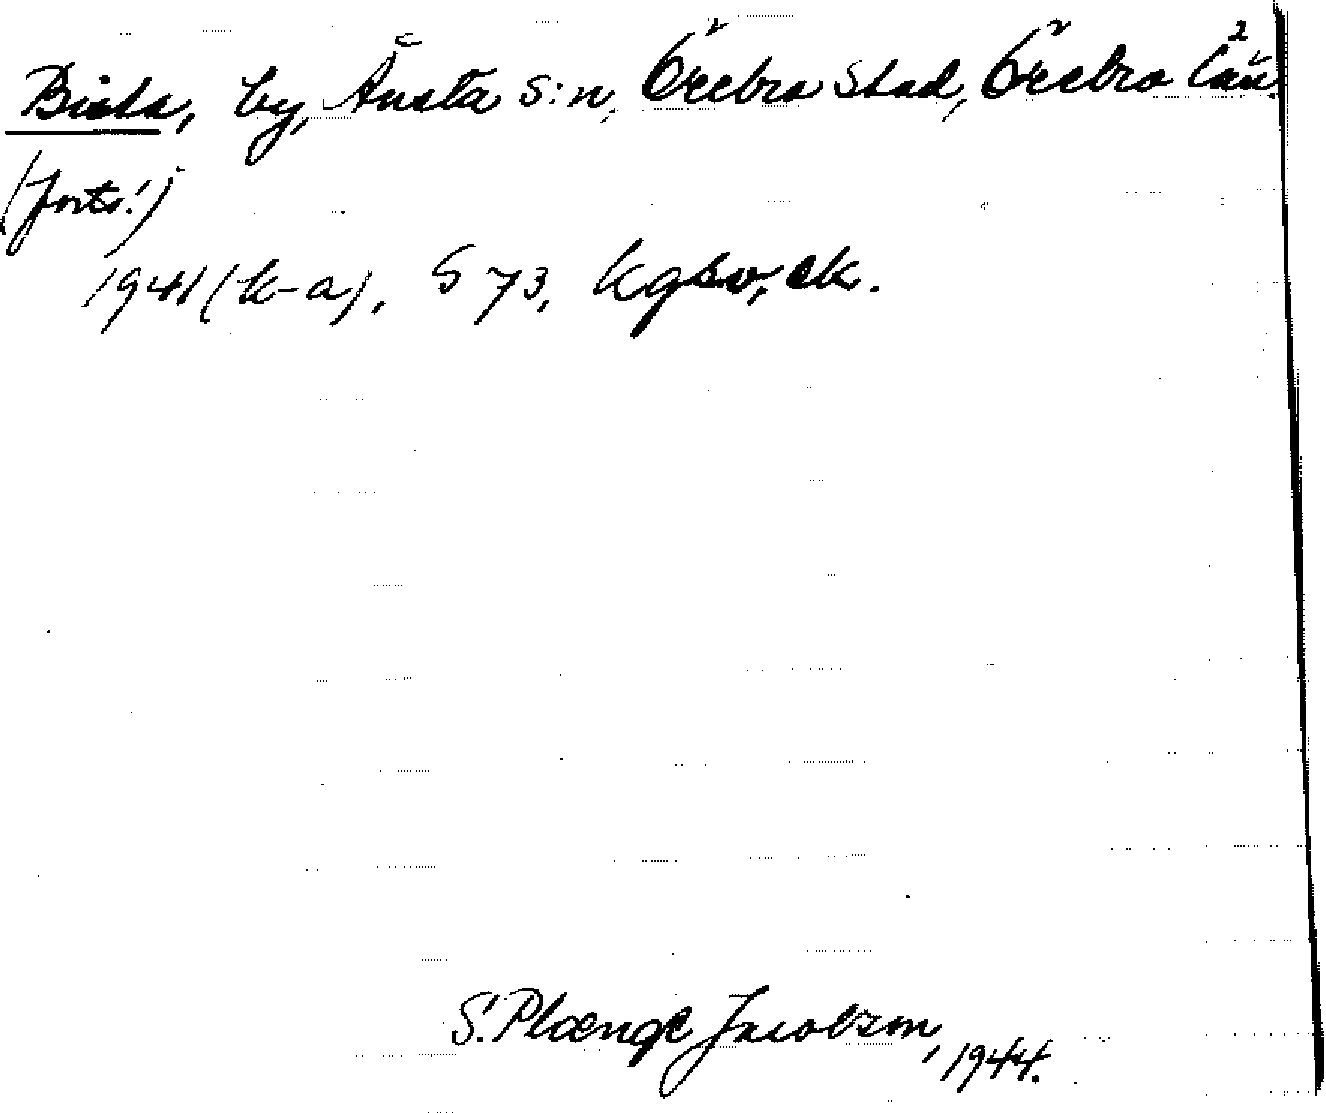 Bista, by, Ånsta s:n, Örebro stad, Örebro län.
(forts.)
1941 (k-a), S 73, Kgsv, ek.
S. Plænge Jacobson, 1944.